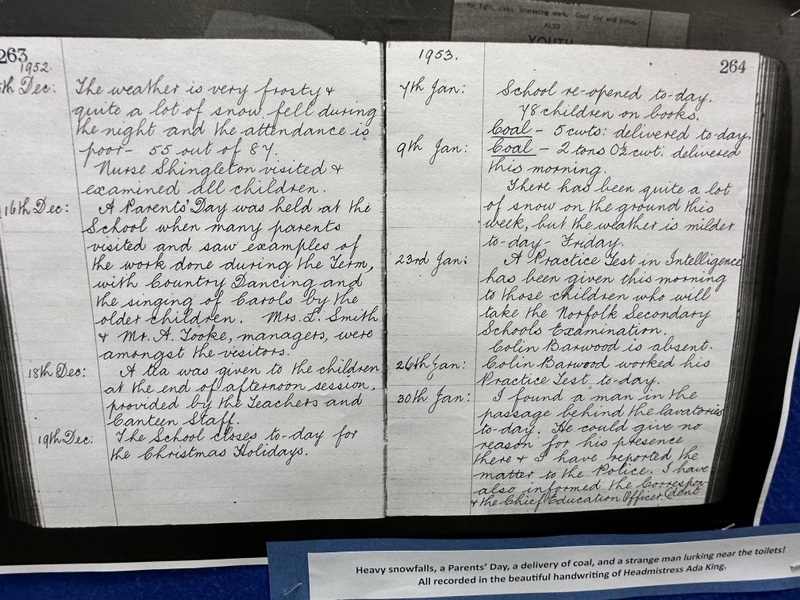 for light, clean, interesting work. Good pay and bonus.
ALSO
YOUTH
263
1952.
th Dec: The weather is very frosty &
quite a lot of snow fell during
the night and the attendance is
poor - 55 out of 87.
Nurse Shingleton visited &
examined all children.
16th Dec: A Parents' Day was held at the
School when many parents
visited and saw examples of
the work done during the Term,
with Country Dancing and
the singing of Carols by the
older children. Mrs. L. Smith
& Mr. A. Tooke, managers, were
amongst the visitors.
18th Dec: A tea was given to the children
at the end of afternoon session,
provided by the Teachers and
Canteen Staff.
19th Dec: The School closes to-day for
the Christmas Holidays.
1953.
264
7th Jan: School re-opened to-day.
78 children on books.
Coal - 5 cwts: delivered to day.
9th Jan: Coal - 2 tons 0½ cwt. delivered
this morning.
There has been quite a lot
of snow on the ground this
week, but the weather is milder
to-day - Friday.
23rd Jan: A Practice Test in Intelligence
has been given this morning
to those children who will
take the Norfolk Secondary
Schools Examination.
Colin Barwood is absent.
26th Jan: Colin Barwood worked his
Practice Test to-day.
30th Jan: I found a man in the
passage behind the lavatories
to-day. He could give no
reason for his presence
there & I have reported the
matter to the Police. I have
also informed the Correspon-
dent
& the Chief Education Officer.
Heavy snowfalls, a Parents' Day, a delivery of coal, and a strange man lurking near the toilets!
All recorded in the beautiful handwriting of Headmistress Ada King.